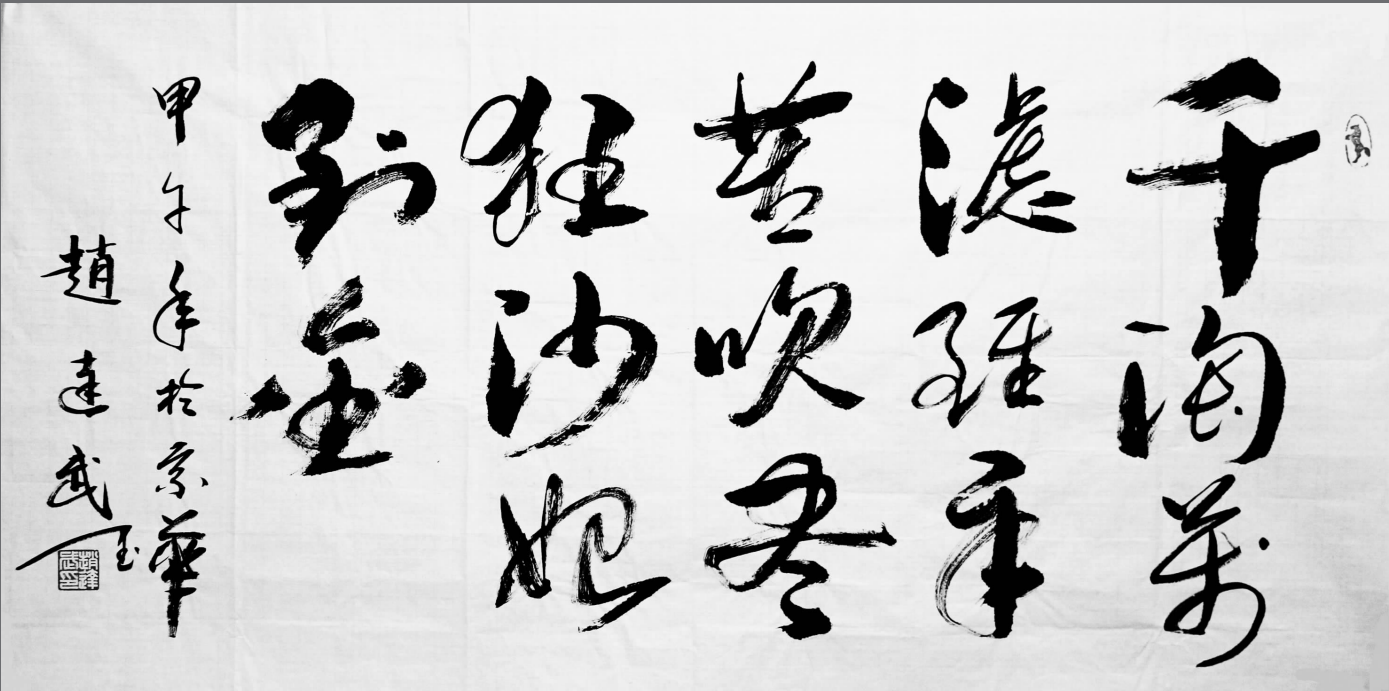 千淘萬
漉雖辛
苦吹尽
狂沙始
到金
甲午年於京華
趙達武